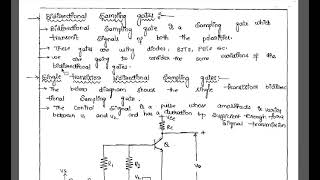 Bidirectional Sampling gates :-
→ Bidirectional Sampling gate is a Sampling gate which
transmit Signals of both the polarities.
→ These gates are using diodes, BJTs, FETs etc.
→ we are going to consider the some variations of the
bidirectional gates.
→ Single transistor bidirectional Sampling gates:-
→ The below diagram shows the single transistor bidirec
-tional Sampling gate.
→ The Control Signal is a pulse whose amplitude is varies
between V1 and V2 and has a duration by sufficient enough for a
Signal transmission
Vcc
Rc
Q
R1
R2
Vo
Vs